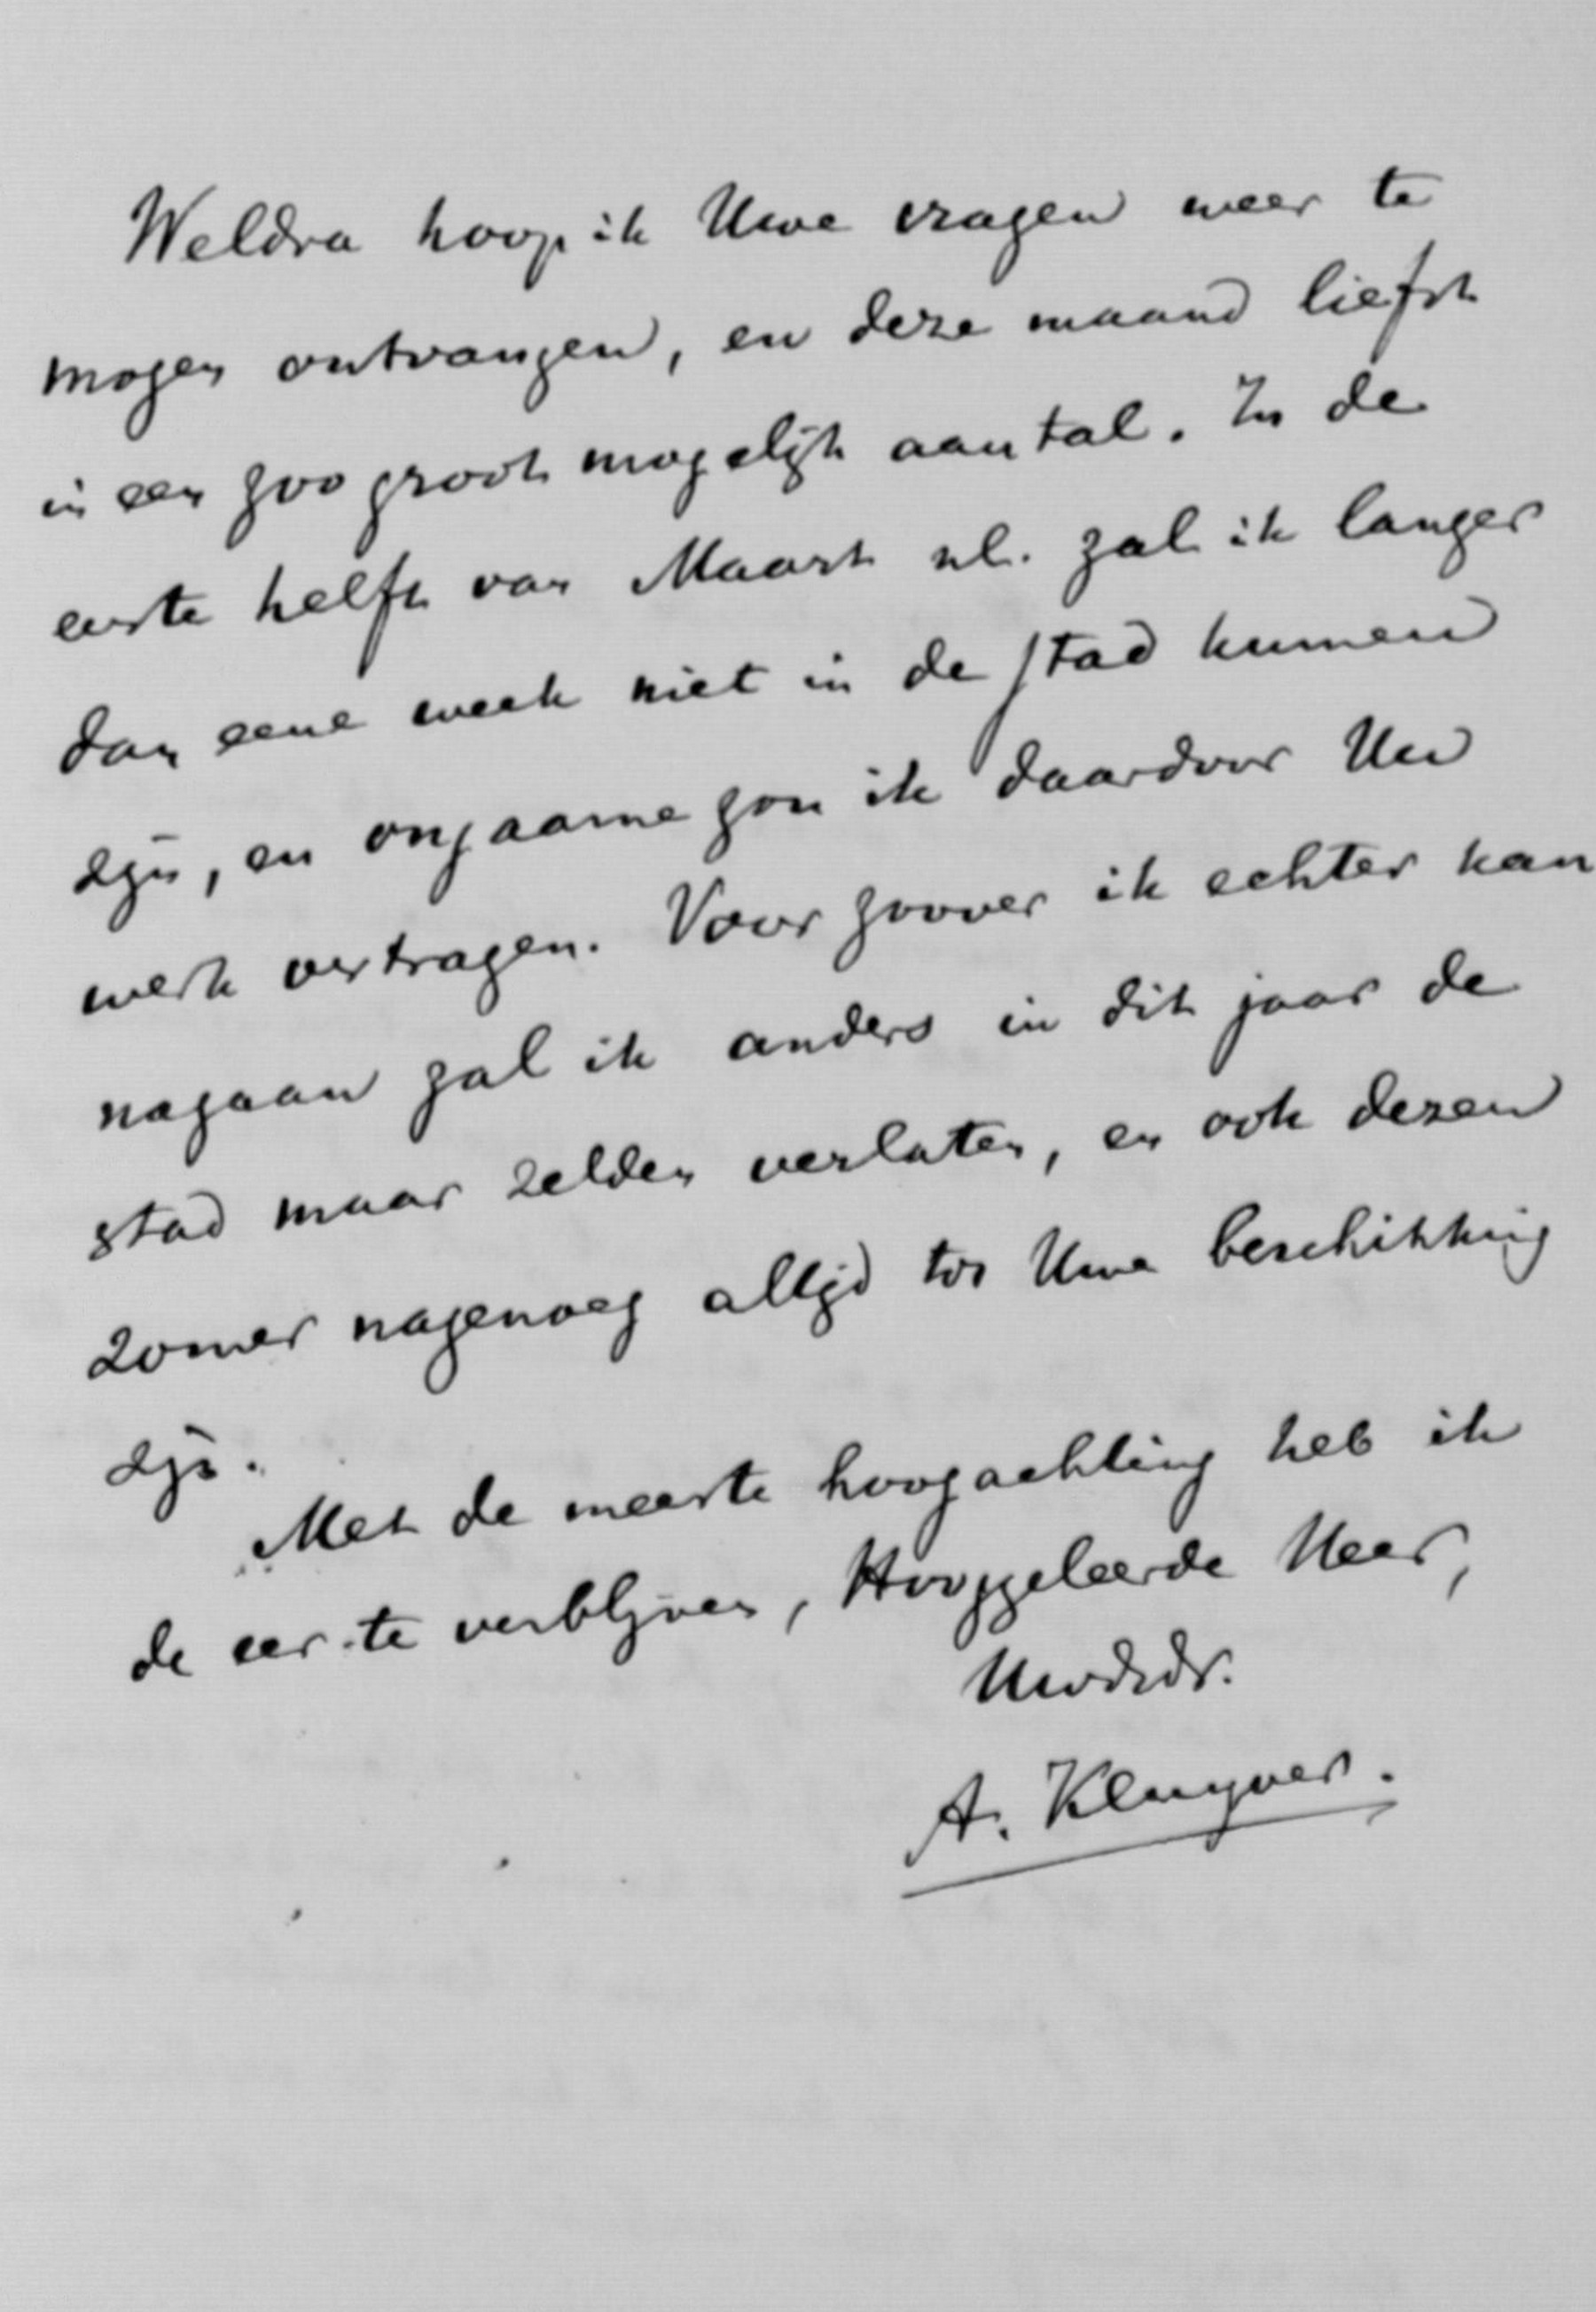 Weldra hoop ik Uwe vragen weer te
mogen ontvangen, en deze maand liefst
in een zoo groot mogelijk aantal. In de
eerste helft van Maart nl. zal ik langer
dan eene week niet in de stad kunnen
zijn, en ongaarne zou ik daardoor Uw
werk vertragen. Voor zoover ik echter kan
nagaan zal ik anders in dit jaar de
stad maar zelden verlaten, en ook dezen
zomer nagenoeg altijd tot Uwe beschikking
zijn.
Met de meeste hoogachting heb ik
de eer te verblijven, Hooggeleerde Heer,
Uwdsdr.
A. Kluyver.